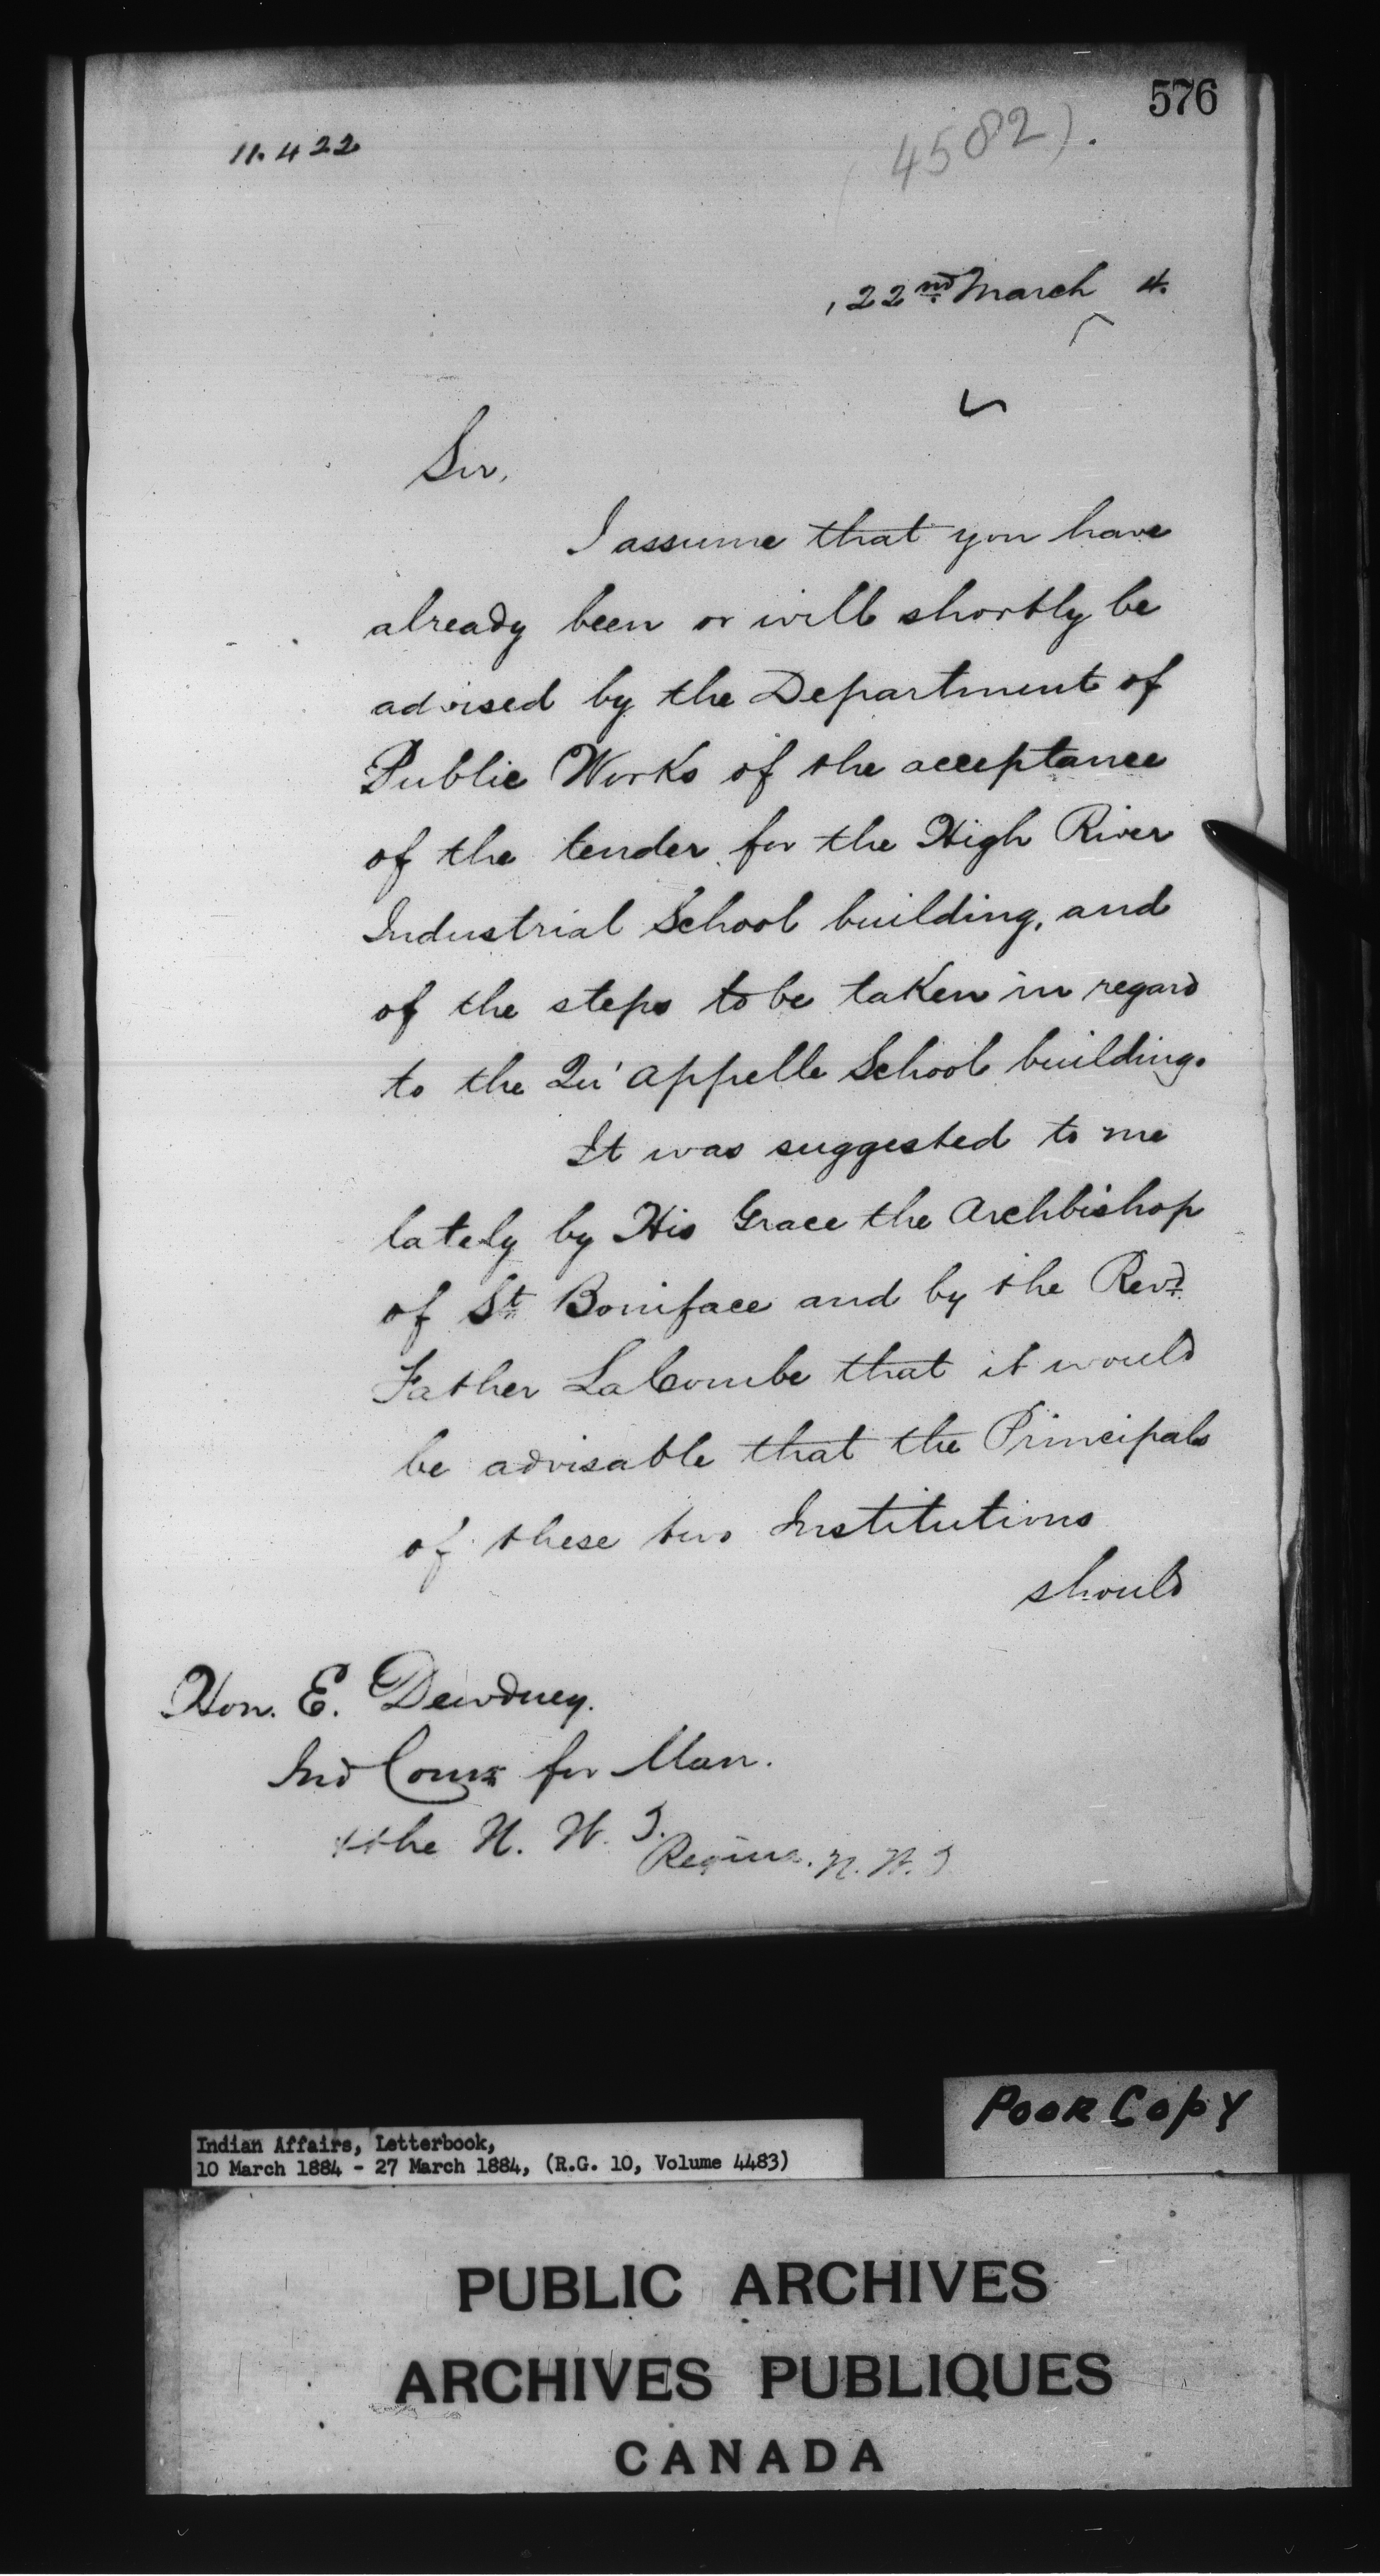 576
11.422
(4582).
22nd March 4.
Sir,
I assume that you have
already been or will shortly be
advised by the Department of
Public Works of the acceptance
of the tender for the High River
Industrial School building, and
of the steps to be taken in regard
to the Qu'Appelle School building.
It was suggested to me
lately by His Grace the Archbishop
of St. Boniface and by the Revd.
Father LaCombe that it would
be advisable that the Principals
of these two Institutions
should
Hon. E. Dewdney.
Ind Comr for Man.
& the N. W. T.
Regina. N. W. T
Poor Copy
Indian Affairs, Letterbook,
10 March 1884 - 27 March 1884, (R.G. 10, Volume 4483)
PUBLIC ARCHIVES
ARCHIVES PUBLIQUES
CANADA